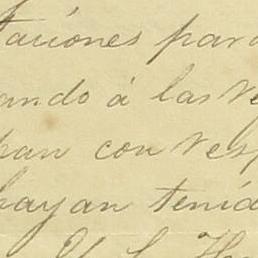 taciones para
ando á las re
pan con resp
hayan tenid